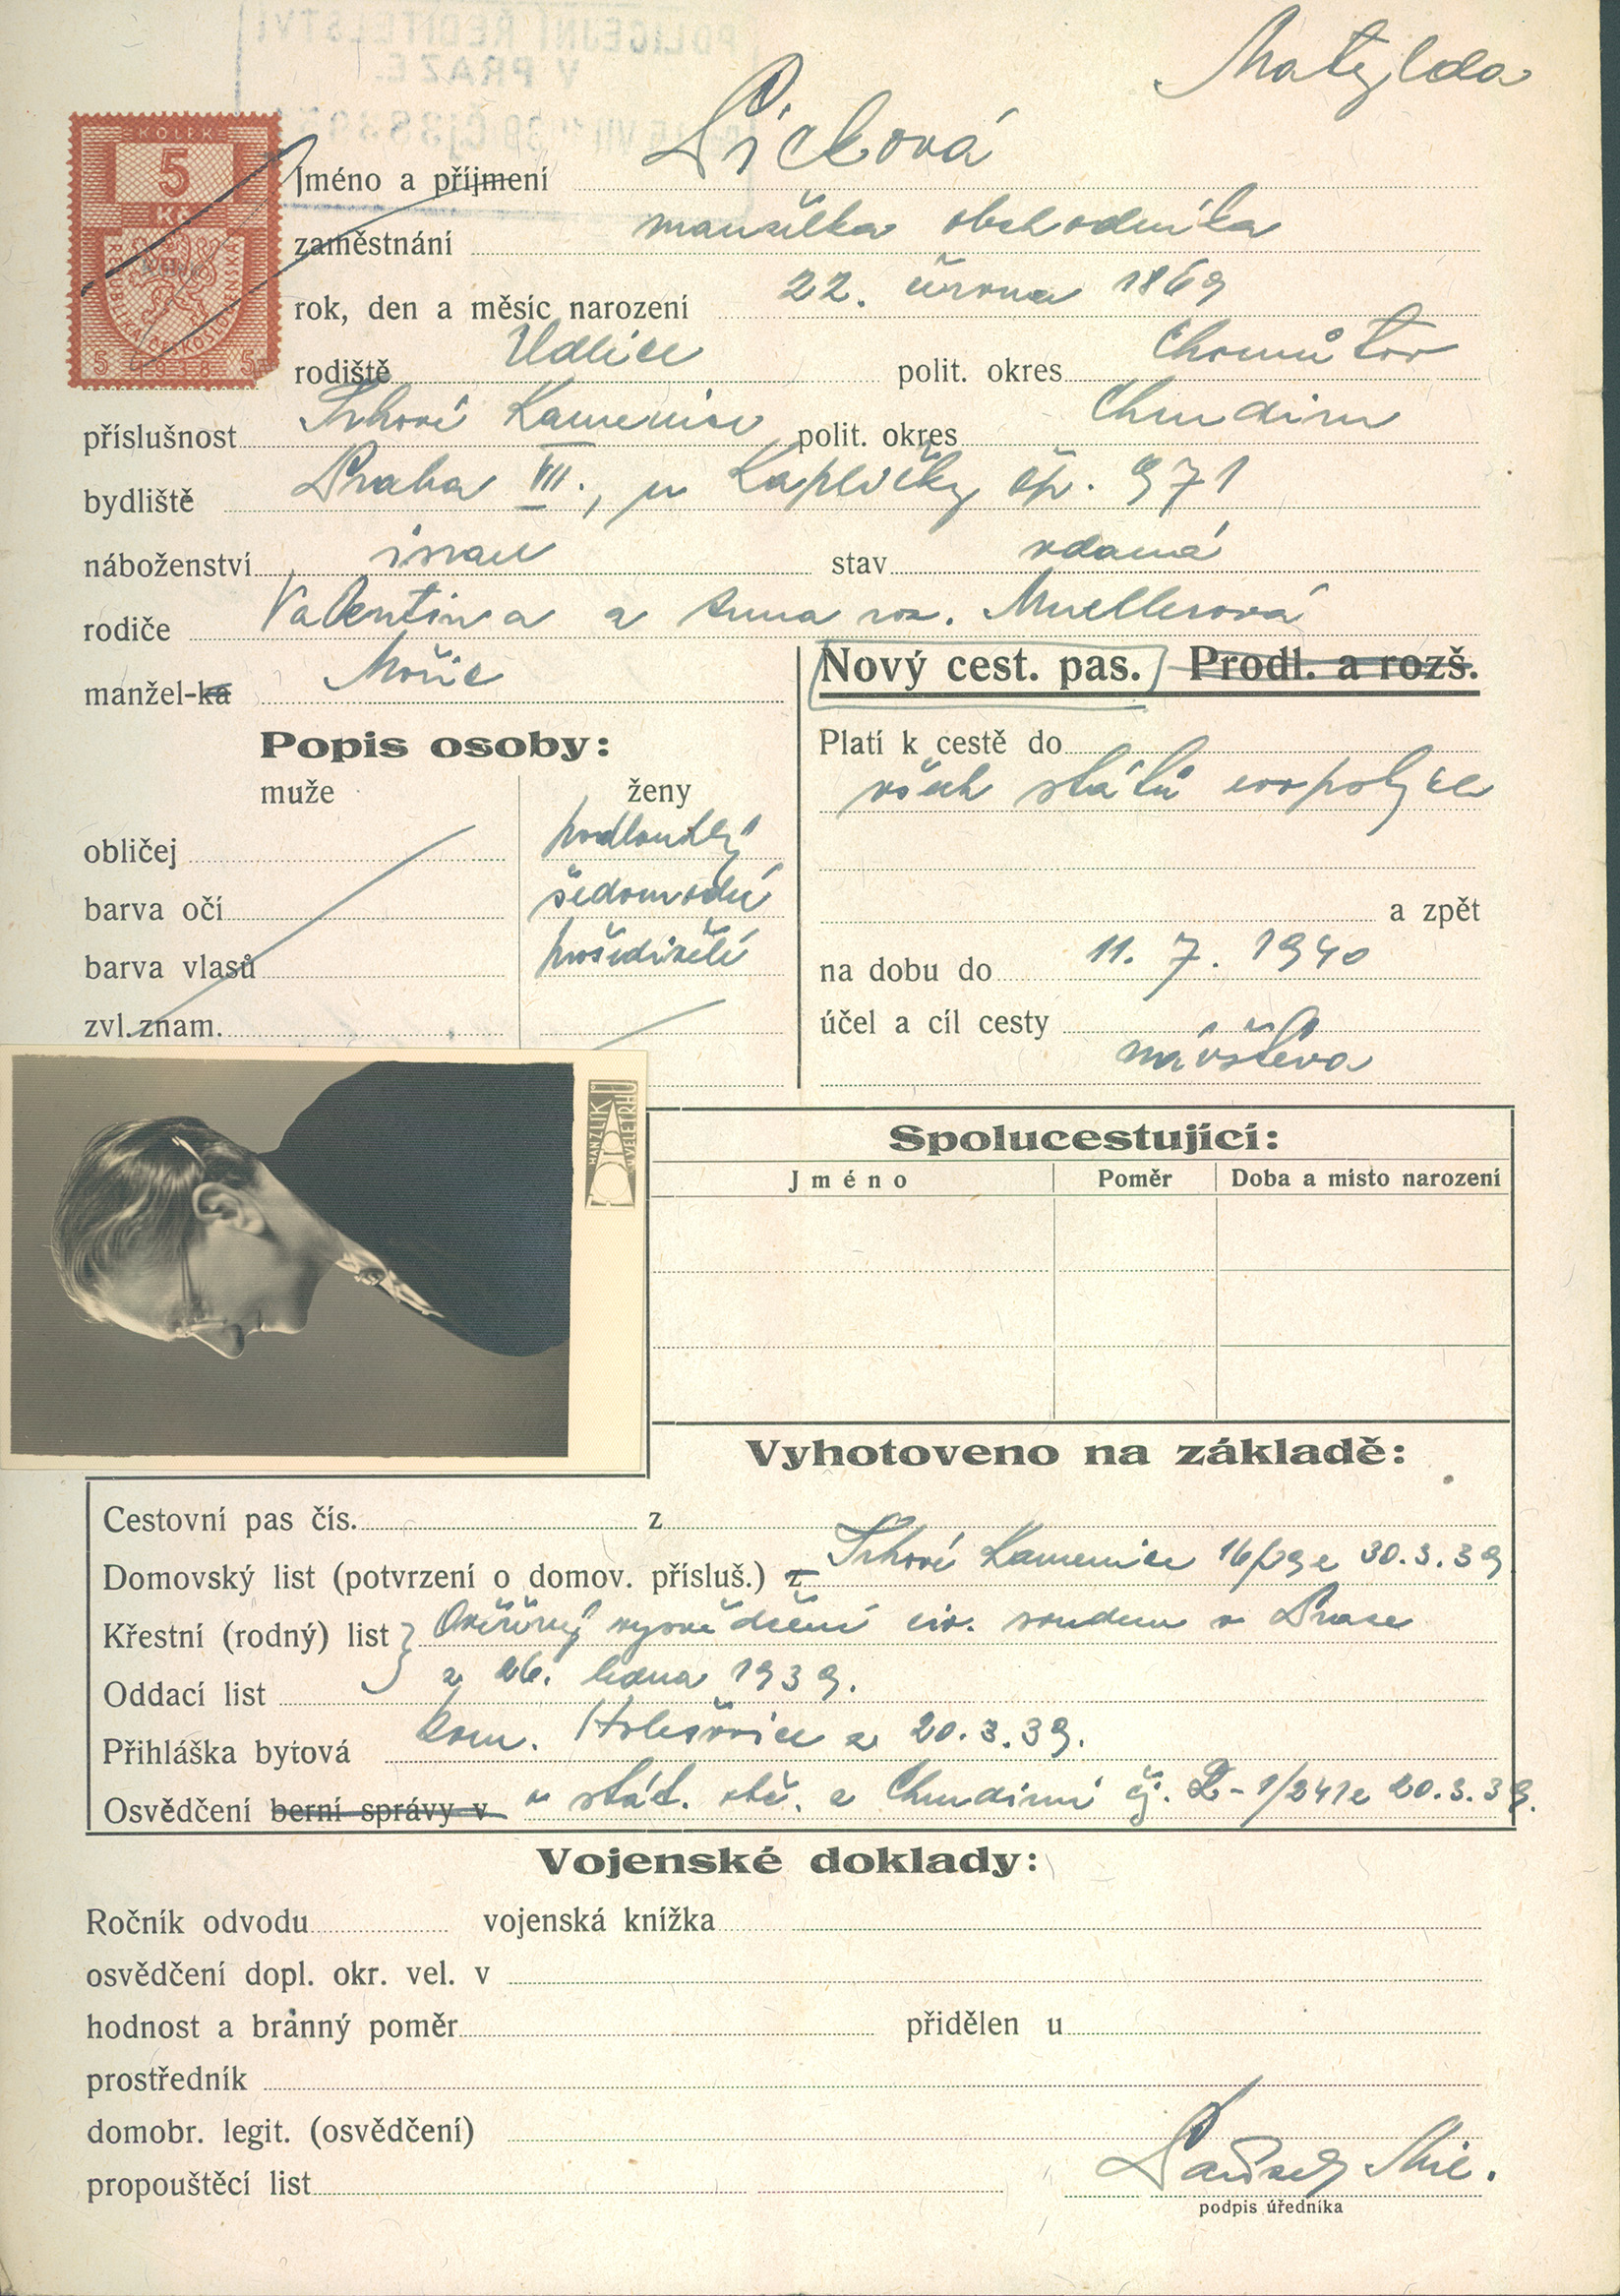 POLICEJNÍ ŘEDITELSTVÍ
V PRAZE.
Matylda
KOLEK
5
Kč
REPUBLIKA ČESKOSLOVENSKÁ
5 1938 5
Jméno a příjmení Picková
zaměstnání manželka obchodníka
rok, den a měsíc narození 22. února 1869
rodiště Údlice polit. okres Chomůtov
příslušnost Trhová Kamenice polit. okres Chrudim
bydliště Praha VII., u Kapličky čp. 971
náboženství israel stav vdaná
rodiče Valentina a Anna roz. Muellerová
manžel-ka Mořic
Nový cest. pas. Prodl. a rozš.
Popis osoby:
muže ženy
obličej podlouhlý
barva očí šedomodré
barva vlasů prošedivělé
zvl. znam.
Platí k cestě do
všech států evropských
a zpět
na dobu do 11. 7. 1940
účel a cíl cesty
návštěva
HANZLIK
FOTO
U VELETRHU
Spolucestující:
Jméno Poměr Doba a místo narození
Vyhotoveno na základě:
Cestovní pas čís. z
Domovský list (potvrzení o domov. přísluš.) z Trhové Kamenice 30.3.39
Křestní (rodný) list vysvědčení civ. soudu v Praze
Oddací list z 26. ledna 1939.
Přihláška bytová kom. Holešovice z 20.3.39.
Osvědčení berní správy v o stát. obč. z Chrudimi čj. 20.3.39.
Vojenské doklady:
Ročník odvodu vojenská knížka
osvědčení dopl. okr. vel. v
hodnost a branný poměr přidělen u
prostředník
domobr. legit. (osvědčení)
propouštěcí list
podpis úředníka